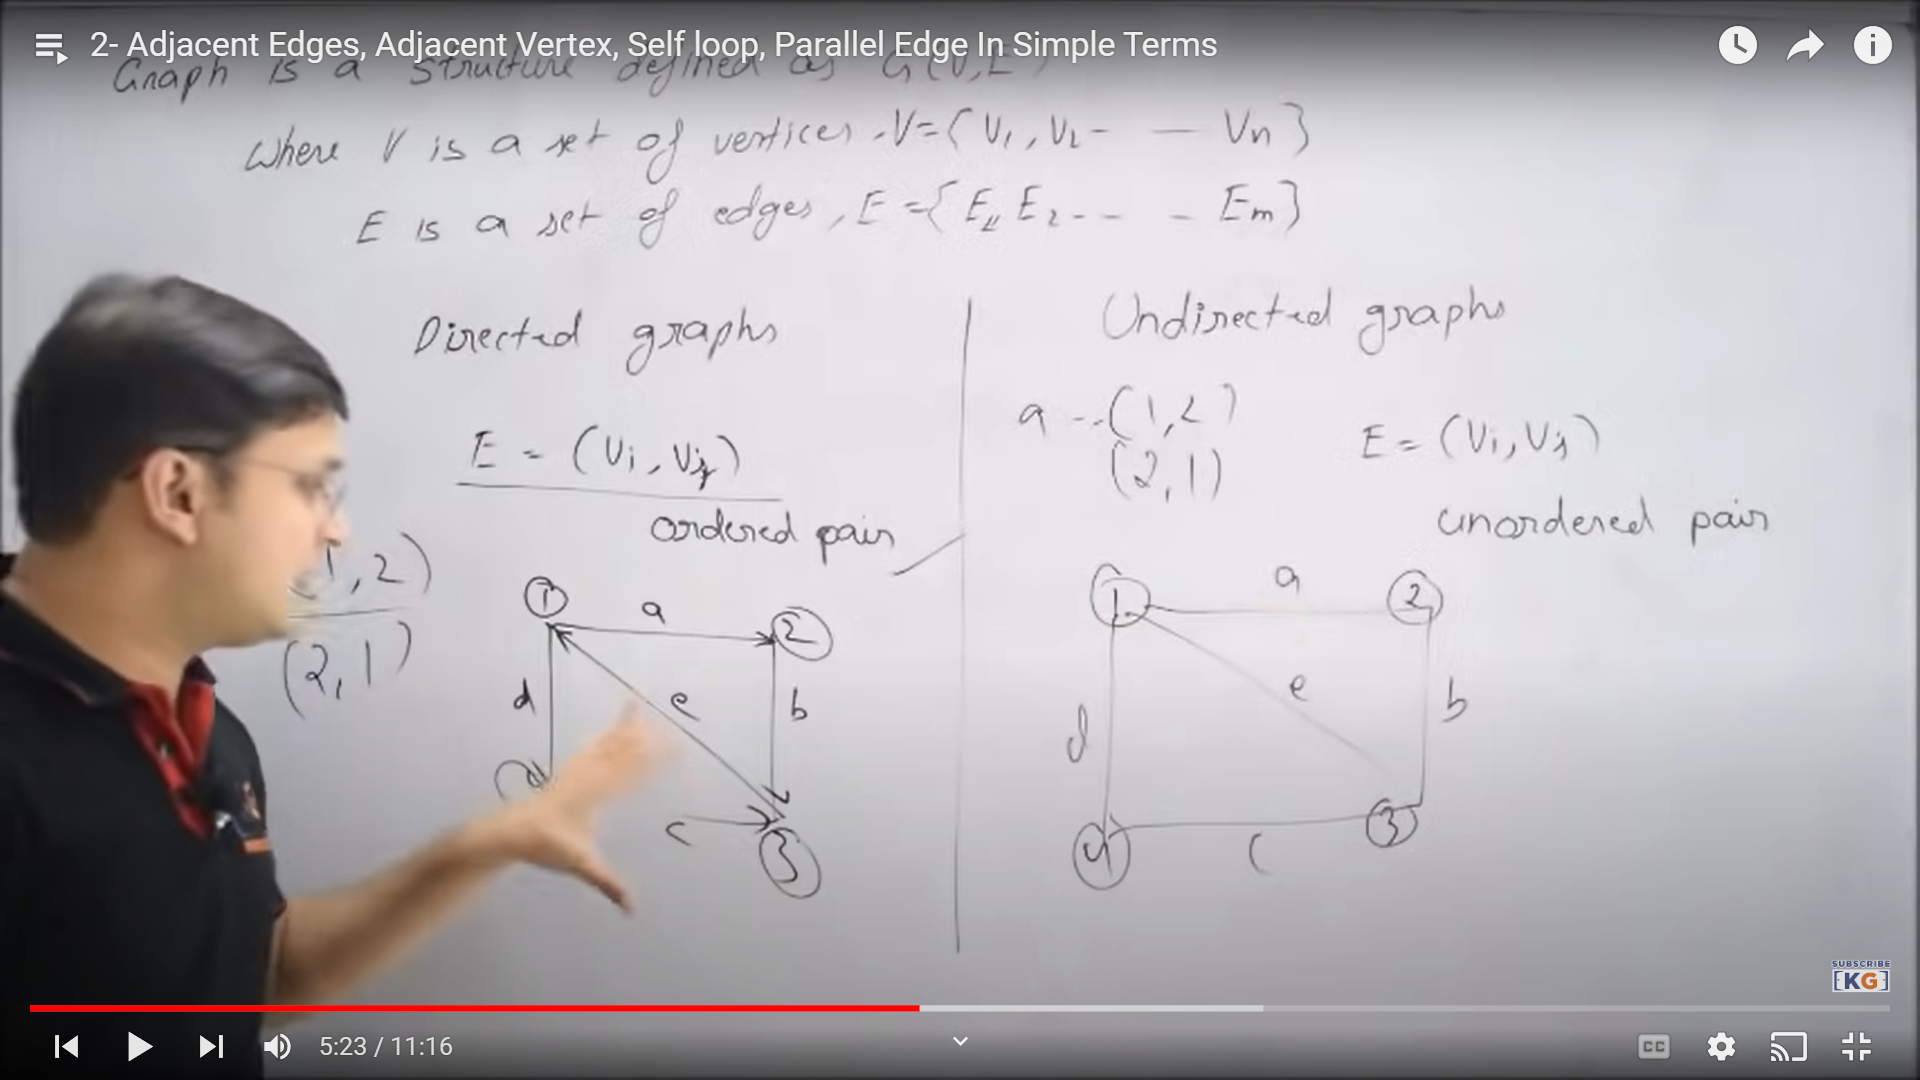 2- Adjacent Edges, Adjacent Vertex, Self loop, Parallel Edge In Simple Terms
Graph is a structure defined as G(V,E)
Where V is a set of vertices, V={V1, V2 - — Vn}
E is a set of edges, E={E1, E2 - - - Em}
Directed graphs
E = (Vi, Vj)
ordered pair
1,2)
(2,1)
1
a
2
d
e
b
c
3
Undirected graphs
a --(1,2)
(2,1)
E = (Vi, Vj)
unordered pair
1
a
2
d
e
b
4
c
3
SUBSCRIBE
[KG]
5:23 / 11:16
CC